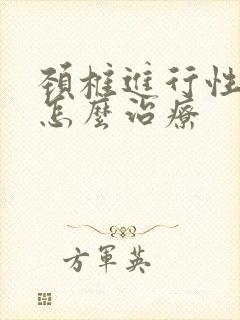 頚椎進行性
怎麼治療
方軍英